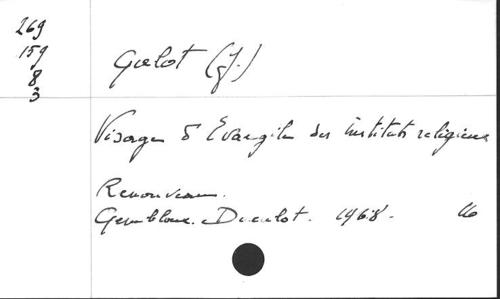 269
159
8
3
Galot (J.)
Visage d'Evangile des instituts religieux
Renouveau.
Gembloux. Duculot. 1968.